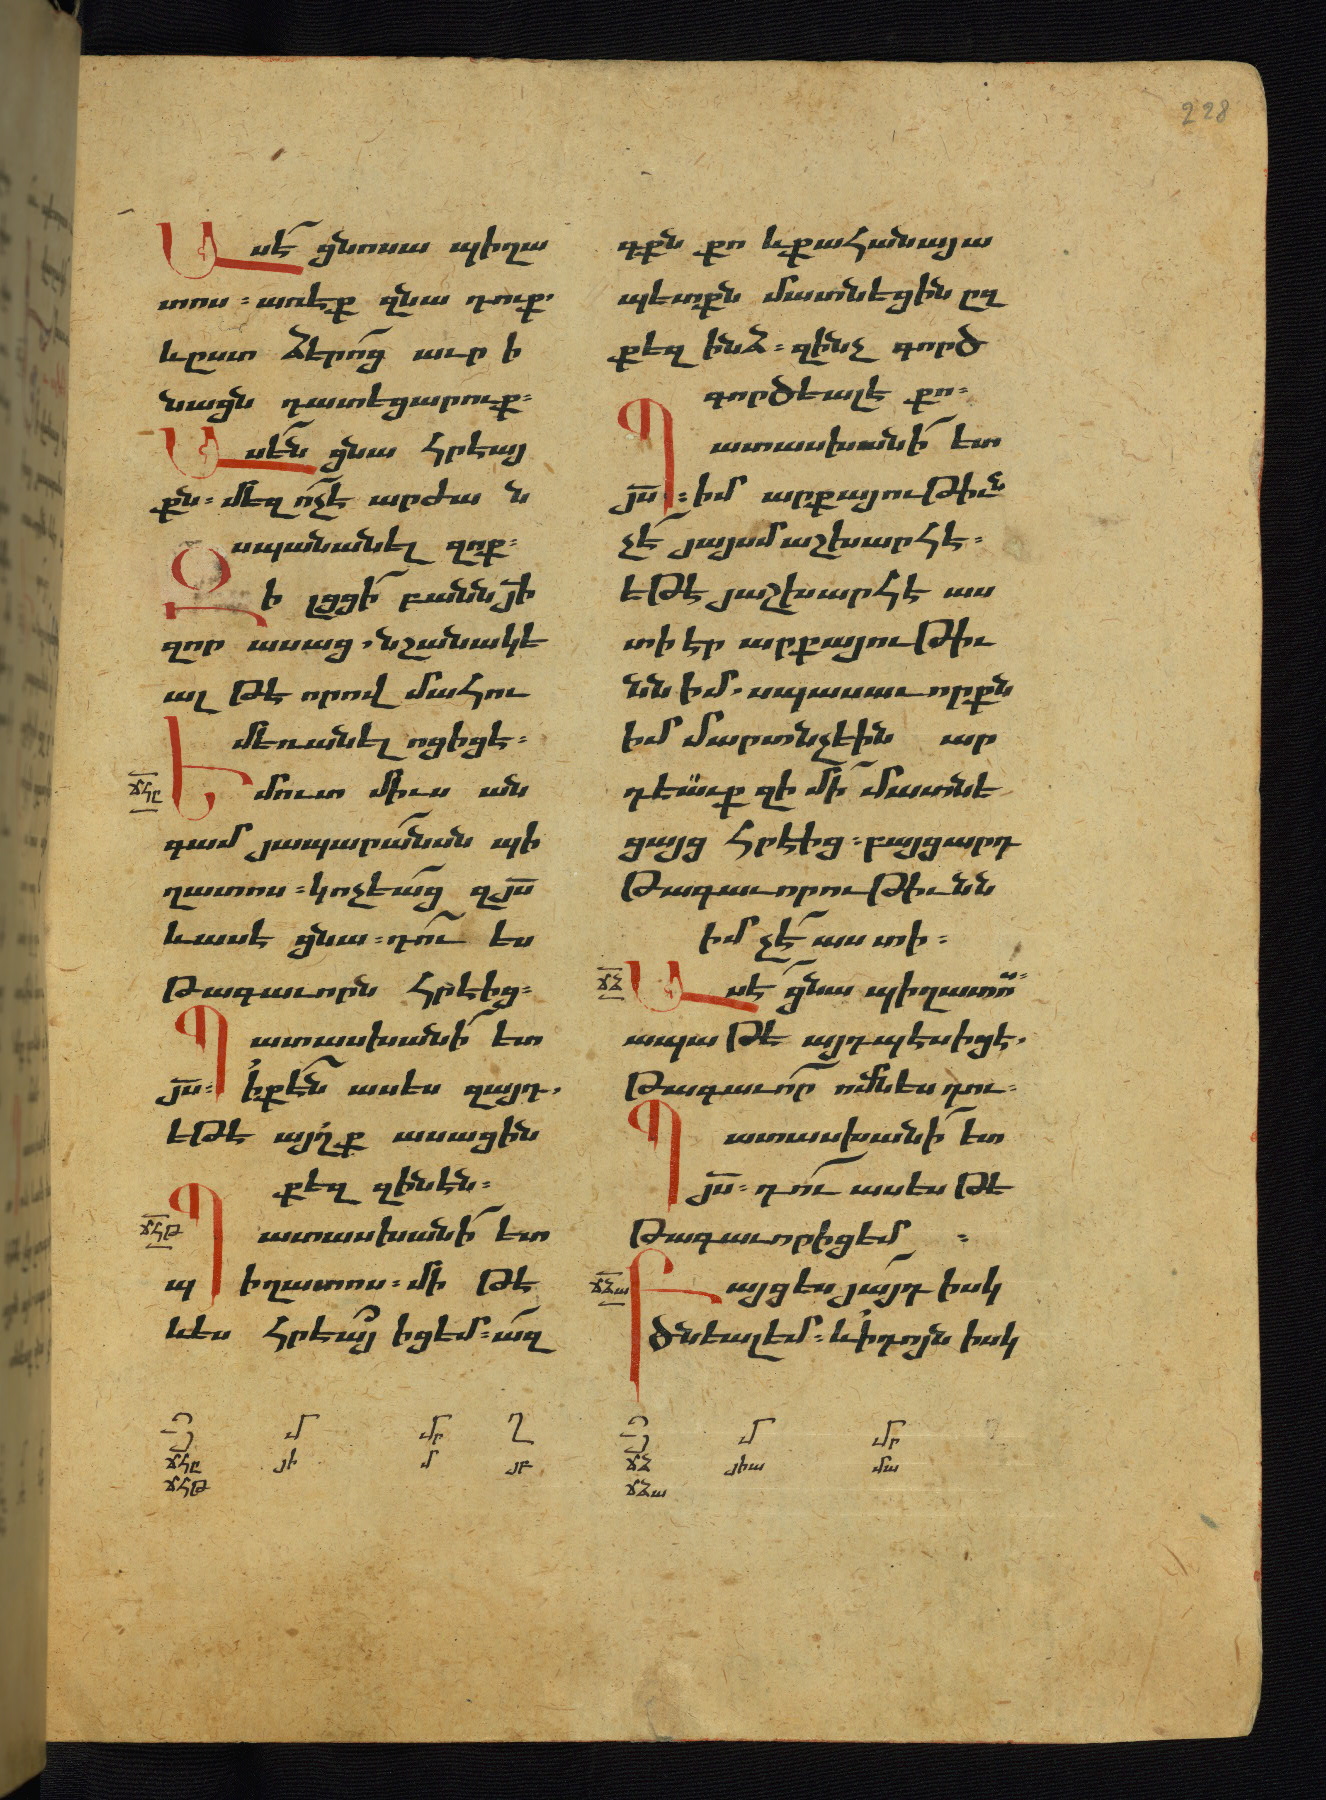 228
Ասէ ցնոսա պիղա
տոս ։ առէք զնա դուք,
ևըստ ձերոց աւրի
նացն դատեցարուք ։
Ասեն ցնա հրեայ
քն ։ մեզ ոչէ արժան
սպանանել զոք ։
Զի լցցի բանն յի
զոր ասաց, նշանակե
ալ թե որով մահու
մեռանել ոցիցէ ։
ճհը
Եմուտ միւս ան
գամ յապարանսն պի
ղատոս ։ կոչեաց զյս
ևասէ ցնա ։ դու ես
թագաւորն հրէից ։
Պատասխանի ետ
յս ։ ի քէն ասես զայդ,
եթէ այլք ասացին
քեզ զինէն ։
ճհթ
Պատասխանի ետ
պիղատոս ։ մի թէ
ևես հրեայ իցեմ ։ ազ
գքն քո ևքահանայա
պետքն մատնեցին ըզ
քեզ ինձ ։ զինչ գործ
գործեալէ քո ։
Պատասխանի ետ
յս ։ իմ արքայութիւն
չէ յայսմ աշխարհէ ։
եթէ յաշխարհէ աս
տի էր արքայութիւ
նն իմ, սպասաւորքն
իմ մարտնչէին ար
դեաւք զի մի մատնե
ցայց հրէից ։ բայցարդ
թագաւորութիւնն
իմ չէ աստի ։
ճձ
Ասէ ցնա պիղատոս ։
ապա թէ այդպէսիցէ,
թագաւոր ոմնես դու ։
Պատասխանի ետ
յս ։ դու ասես թէ
թագաւորիցեմ ։
ճձա
Բայցես յայդ իսկ
ծնեալեմ ։ ևիդոյն իսկ
մ մր
ճհը յի մ յբ
ճհթ
մ մր
ճձ յիա մա
ճձա